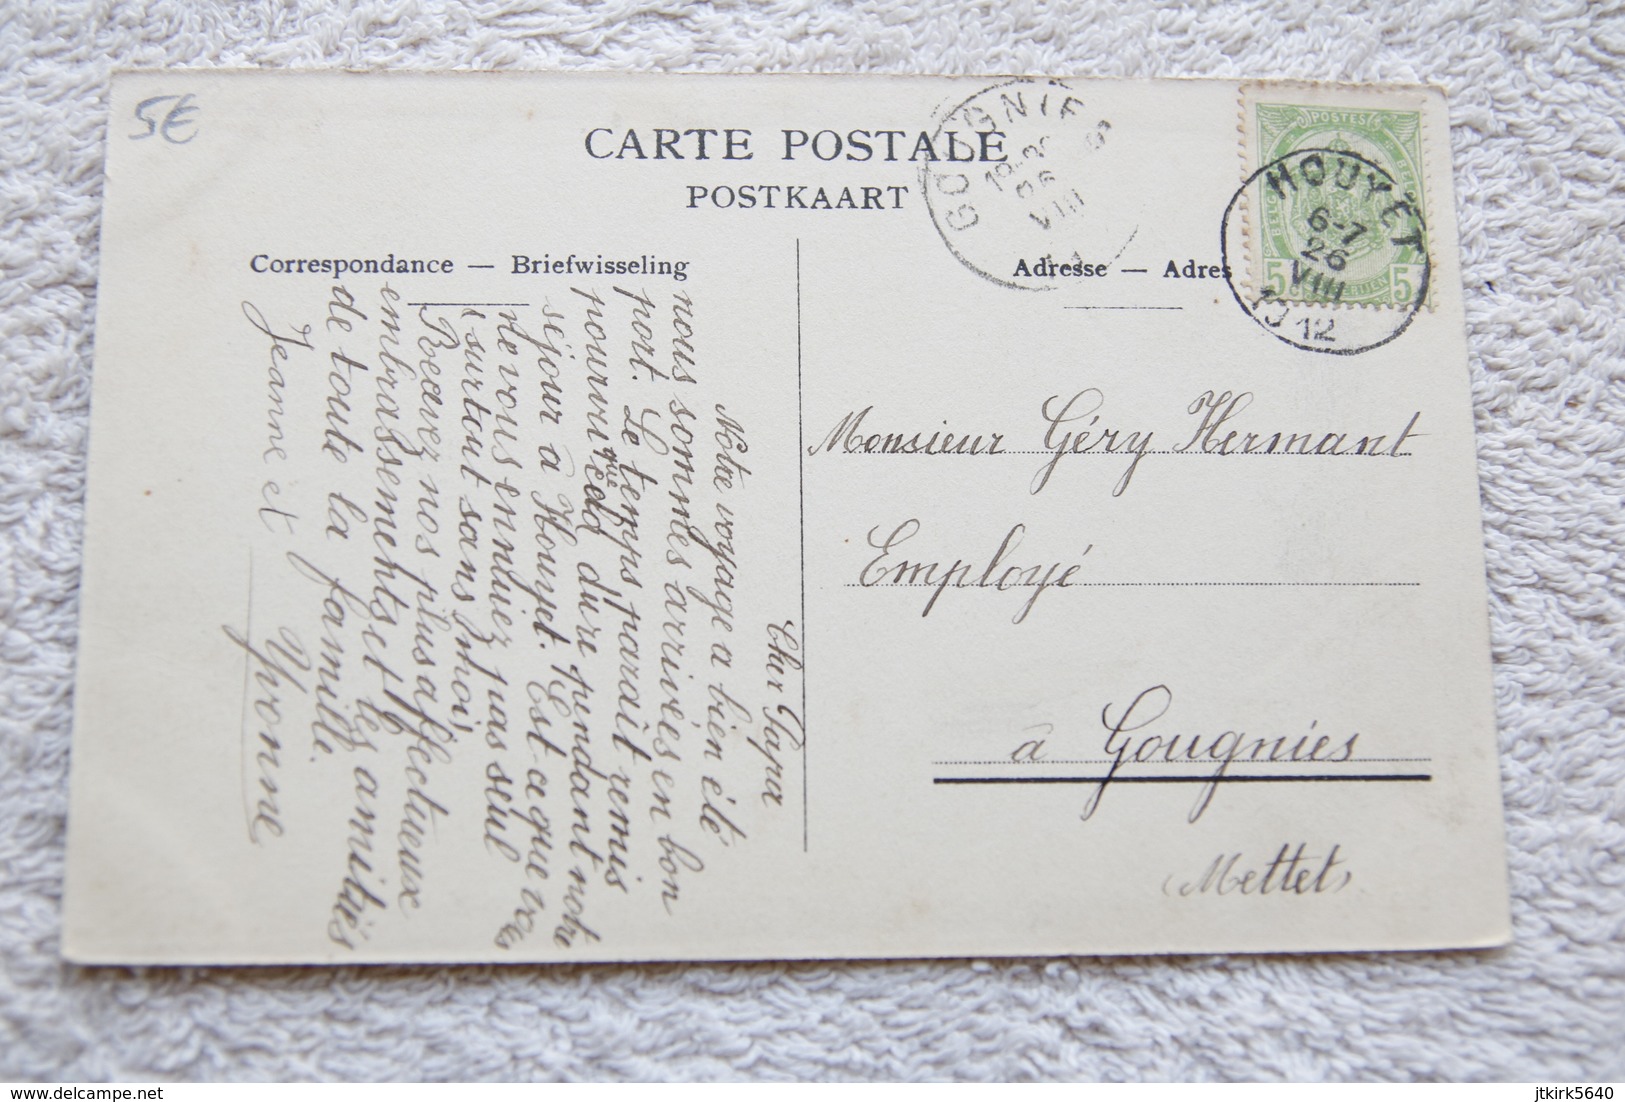 5€
CARTE POSTALE
POSTKAART
Correspondance — Briefwisseling
Adresse — Adres
GOUGNIES
26
VIII
POSTES
5 5
HOUYET
6-7
26
VIII
1912
Monsieur Géry Hermant
Employé
à Gougnies
(Mettet)
Cher Papa
Notre voyage a bien été
nous sommes arrivées en bon
port. Le temps paraît remis
pourvu que cela dure pendant notre
séjour à Houyet. Est-ce que vs
ne vous ennuiez pas seul
(surtout sans moi)
Recevez nos plus affectueux
embrassements et les amitiés
de toute la famille.
Jeanne et
Yvonne
delcampe.net
jtkirk5640